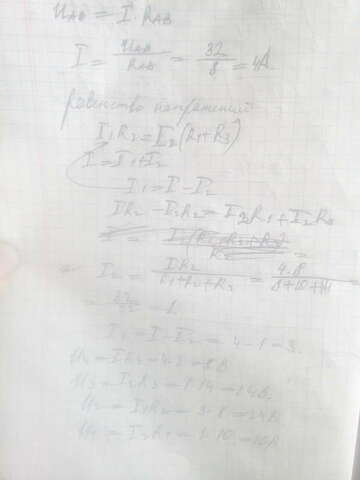 U_AB = I · R_AB
I = U_AB / R_AB = 32 / 8 = 4A
равенство напряжений
I₁R₂ = I₂(R₁+R₃)
I = I₁+I₂
I₁ = I - I₂
IR₂ - I₂R₂ = I₂R₁ + I₂R₃
I₂ = IR₂ / R₁+R₂+R₃ = 4·8 / 8+10+14 =
= 1
I₁ = I - I₂ = 4-1=3.
= 8В
U₃ = I₂R₃ = 1·14 = 14В
U₂ = I₁R₂ = 3·8 = 24В
U₁ = I₂R₁ = 1·10 = 10В